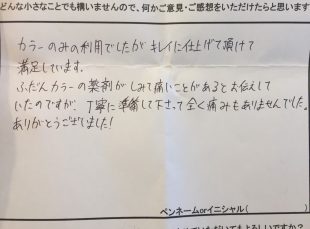 どんな小さなことでも構いませんので、何かご意見・ご感想をいただけたらと思います
カラーのみの利用でしたがキレイに仕上げて頂けて
満足しています。
ふだんカラーの薬剤がしみて痛いことがあるとお伝えして
いたのですが、丁寧に準備して下さって全く痛みもありませんでした。
ありがとうございました!
ペンネームorイニシャル(                )
いただいてもよろしいですか?